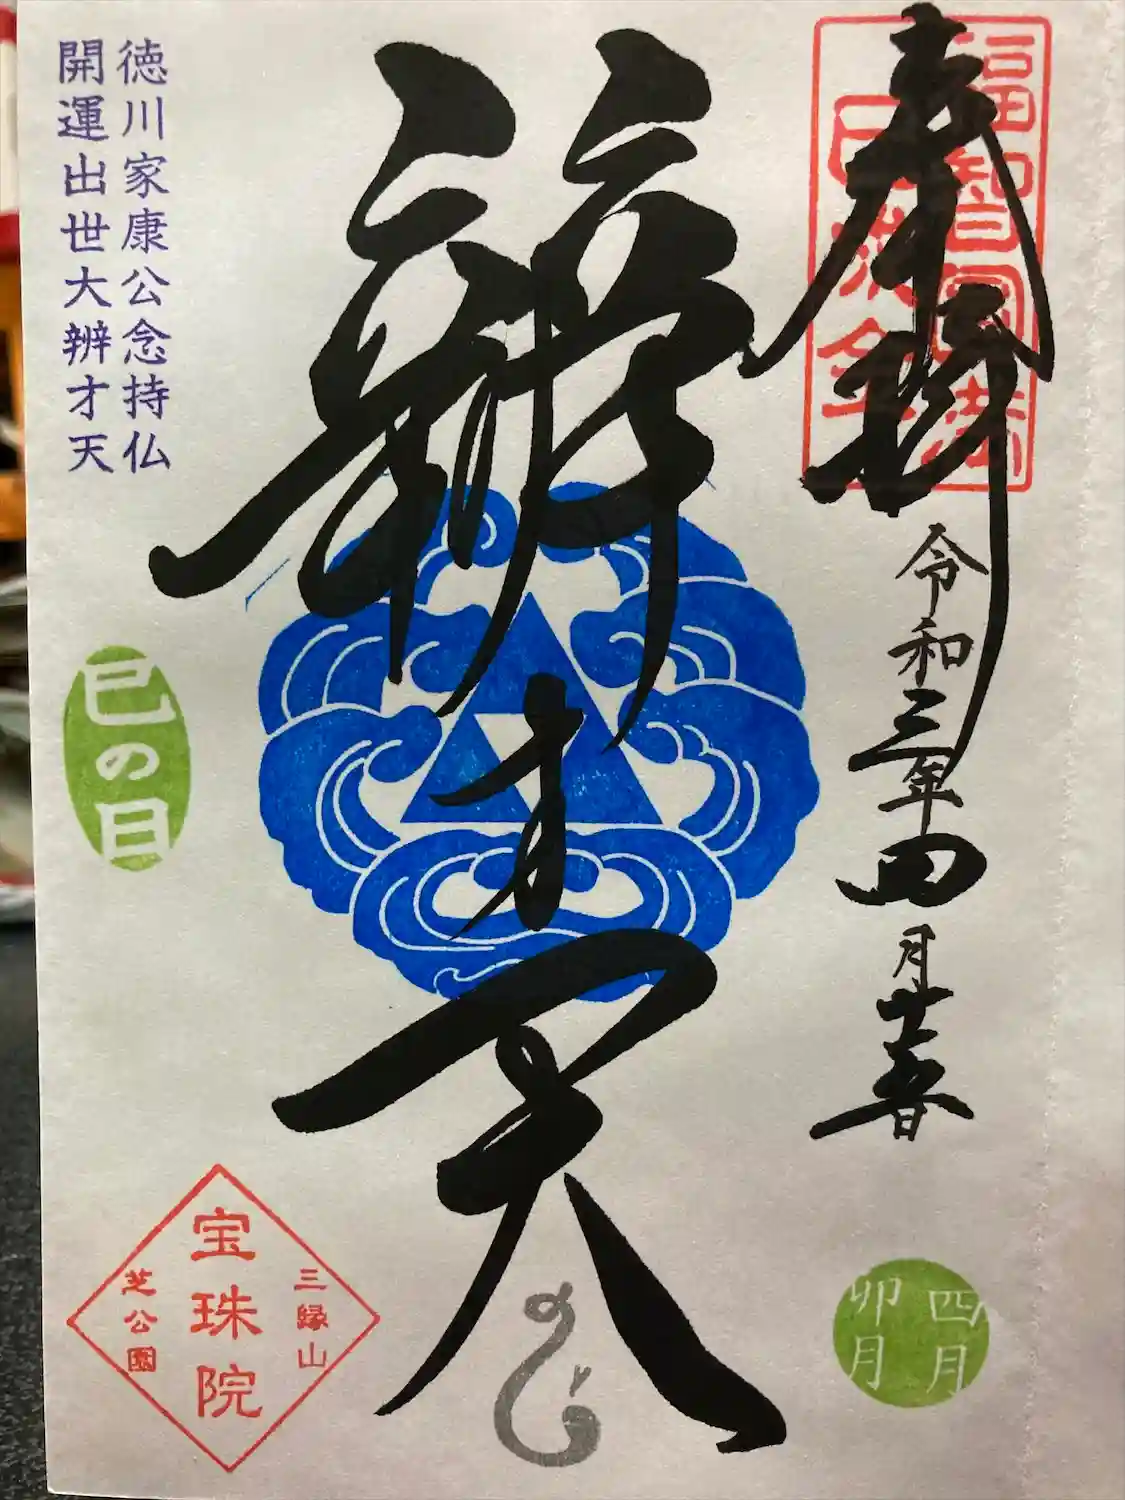 奉拝
福智圓
令和三年四月
四月
卯月
辨才天
徳川家康公念持仏
開運出世大辨才天
巳の日
三縁山
宝珠院
芝公園